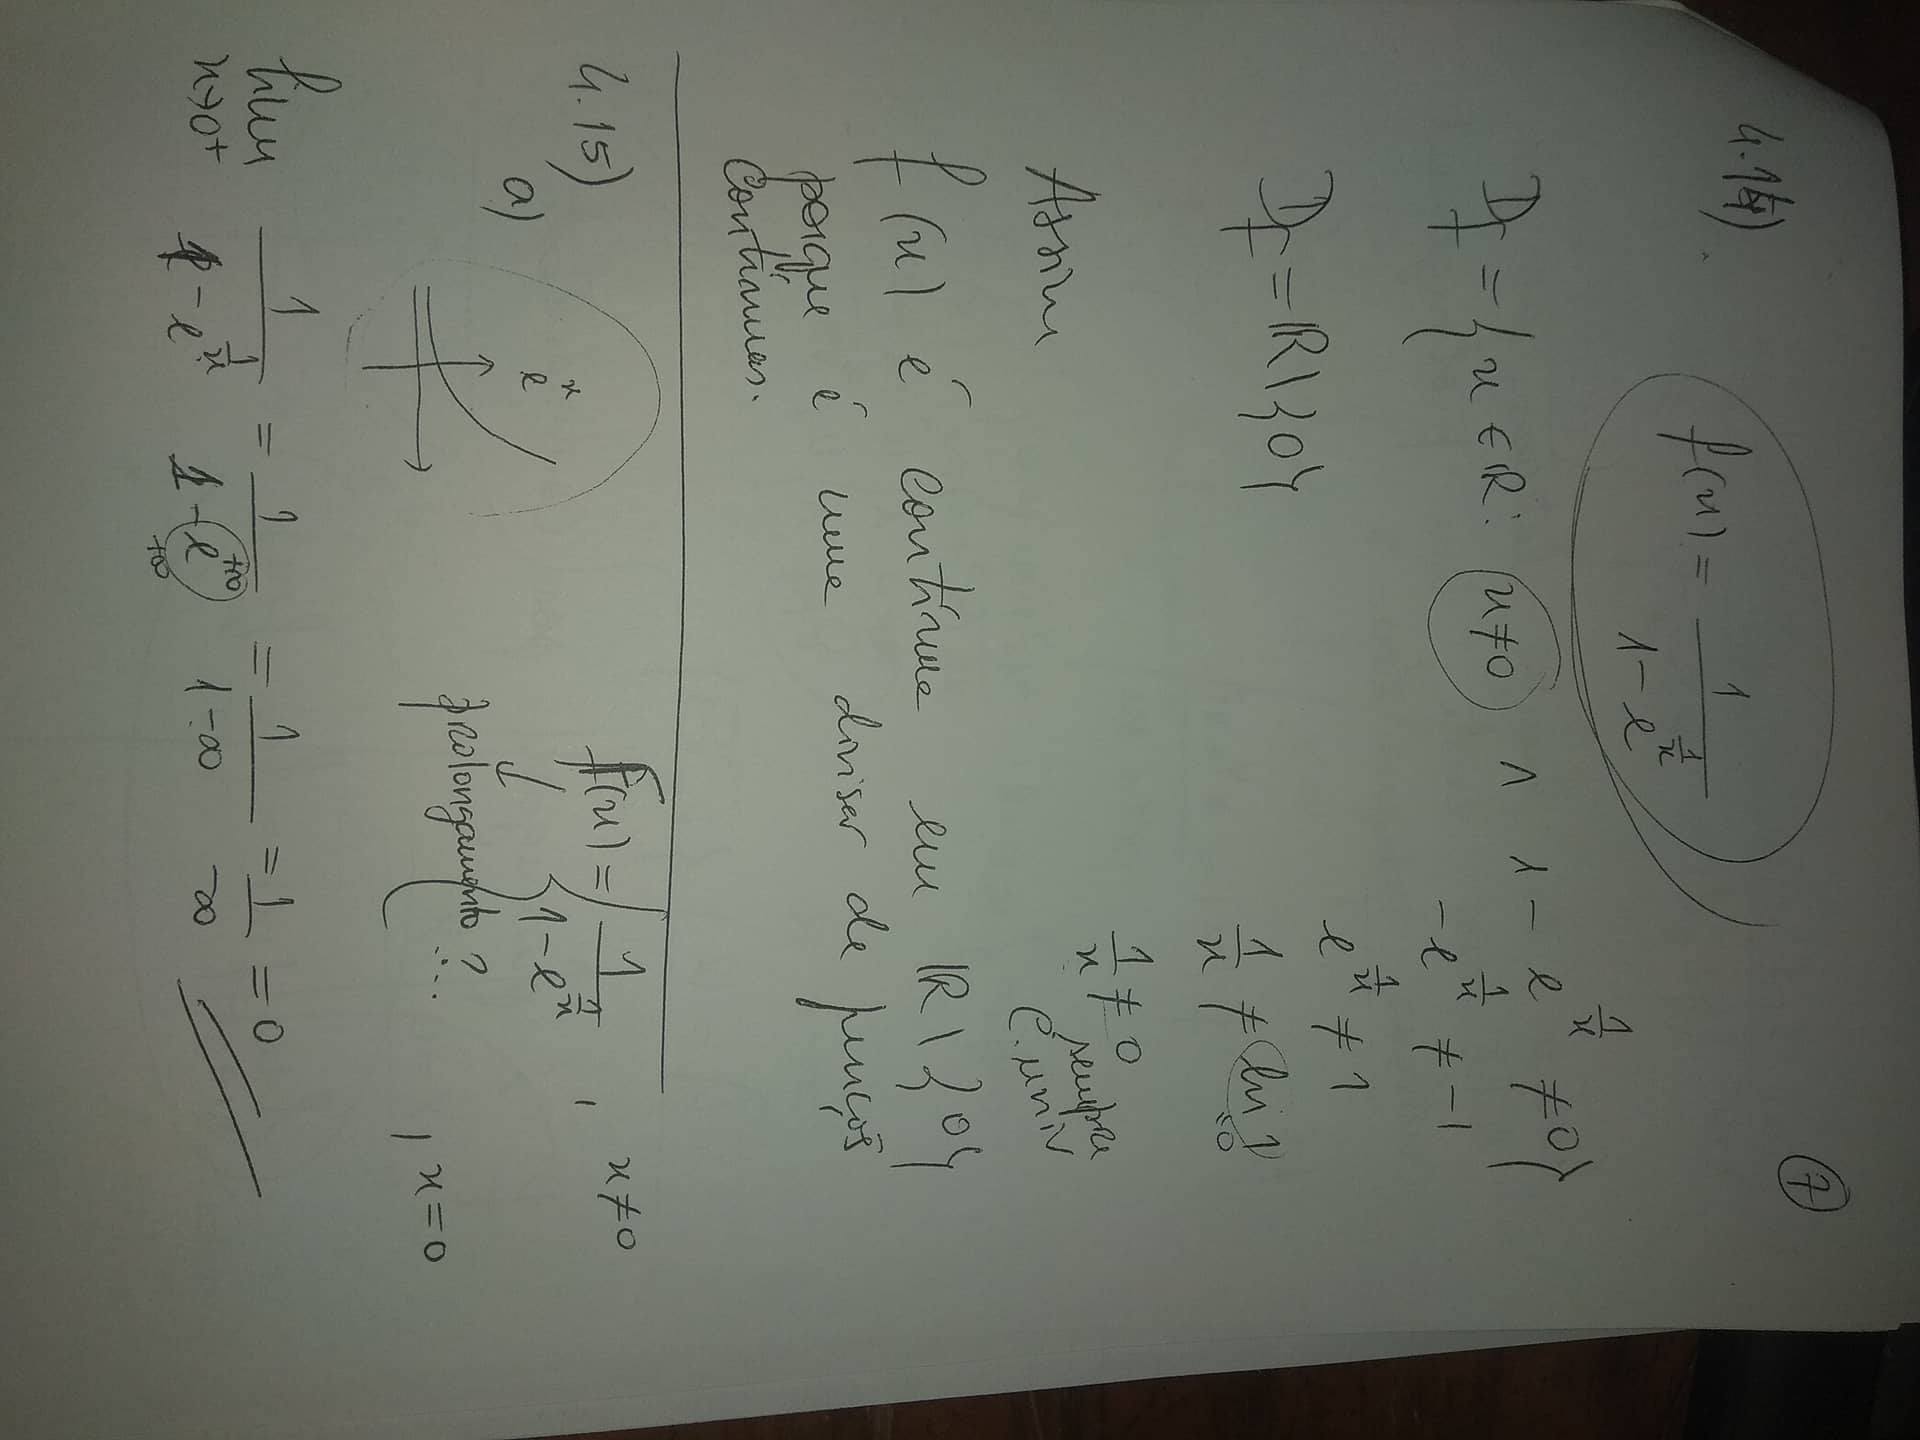 7
4.14)
f(x) = 1/(1 - e^(1/x))
Df = {x ∈ R: x ≠ 0 ∧ 1 - e^(1/x) ≠ 0}
- e^(1/x) ≠ -1
e^(1/x) ≠ 1
Df = R\{0}
1/x ≠ ln 1
"0
1/x ≠ 0 sempre
C. univ
Assim
f(x) é contínua em R\{0}
porque é uma divisão de funções
contínuas.
4.15)
a)
e^x
F(x) = { 1/(1 - e^(1/x)) , x ≠ 0
prolongamento? ... , x = 0
lim x→0+ 1/(1 - e^(1/x)) = 1/(1 - e^(+∞)) = 1/(1 - ∞) = 1/-∞ = 0
+∞